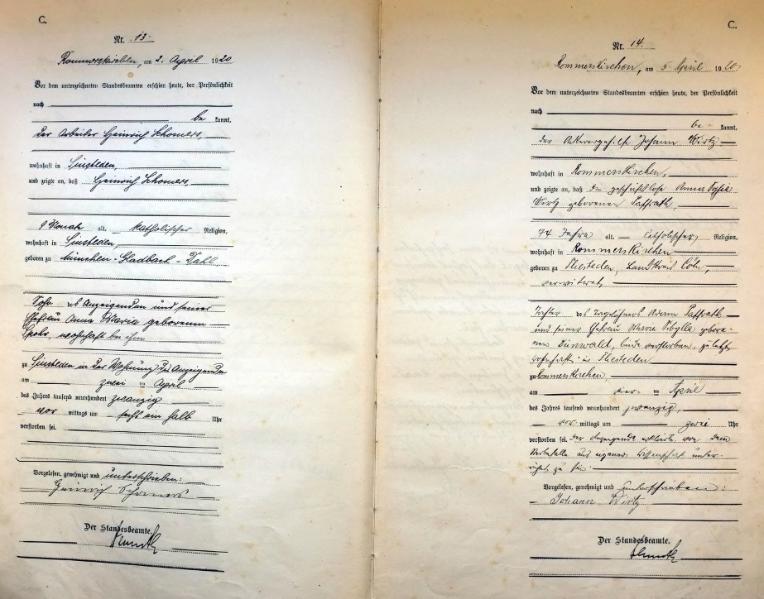 C.
Nr. 13.
Rommerskirchen, am 2. April 1920
Vor dem unterzeichneten Standesbeamten erschien heute, der Persönlichkeit
nach
be kannt,
der Arbeiter Heinrich
wohnhaft in Sinsteden,
und zeigte an, daß Heinrich
Monat alt, katholischer Religion,
wohnhaft in Sinsteden,
geboren zu München-Gladbach-
Sohn des Anzeigenden und seiner
Ehefrau Anna Maria geborenen
wohnhaft bei ihm
zu Sinsteden in der Wohnung des Anzeigenden
am zwei ten April
des Jahres tausend neunhundert zwanzig
vor mittags um halb Uhr
verstorben sei.
Vorgelesen, genehmigt und unterschrieben:
Heinrich
Der Standesbeamte.
C.
Nr. 14.
Rommerskirchen, am 5 April 1920
Vor dem unterzeichneten Standesbeamten erschien heute, der Persönlichkeit
nach
be kannt,
der Johann Wirtz
wohnhaft in Rommerskirchen,
und zeigte an, daß die geschäftslose Anna
Wirtz geborene Paffrath,
74 Jahre alt, katholischer Religion,
wohnhaft in Rommerskirchen
geboren zu Stesteden, Landkreis Cöln,
verwitwet,
Tochter des Tagelöhners Adam Paffrath
und seiner Ehefrau Maria Sibylla gebore-
nen Dünwald, beide verstorben, zuletzt
wohnhaft in Stesteden
zu Rommerskirchen,
am ten April
des Jahres tausend neunhundert zwanzig,
vor mittags um Uhr
verstorben sei. Der Anzeigende erklärte, von dem
Sterbefalle aus eigener Wissenschaft unter-
richtet zu sein
Vorgelesen, genehmigt und unterschrieben:
Johann Wirtz
Der Standesbeamte.